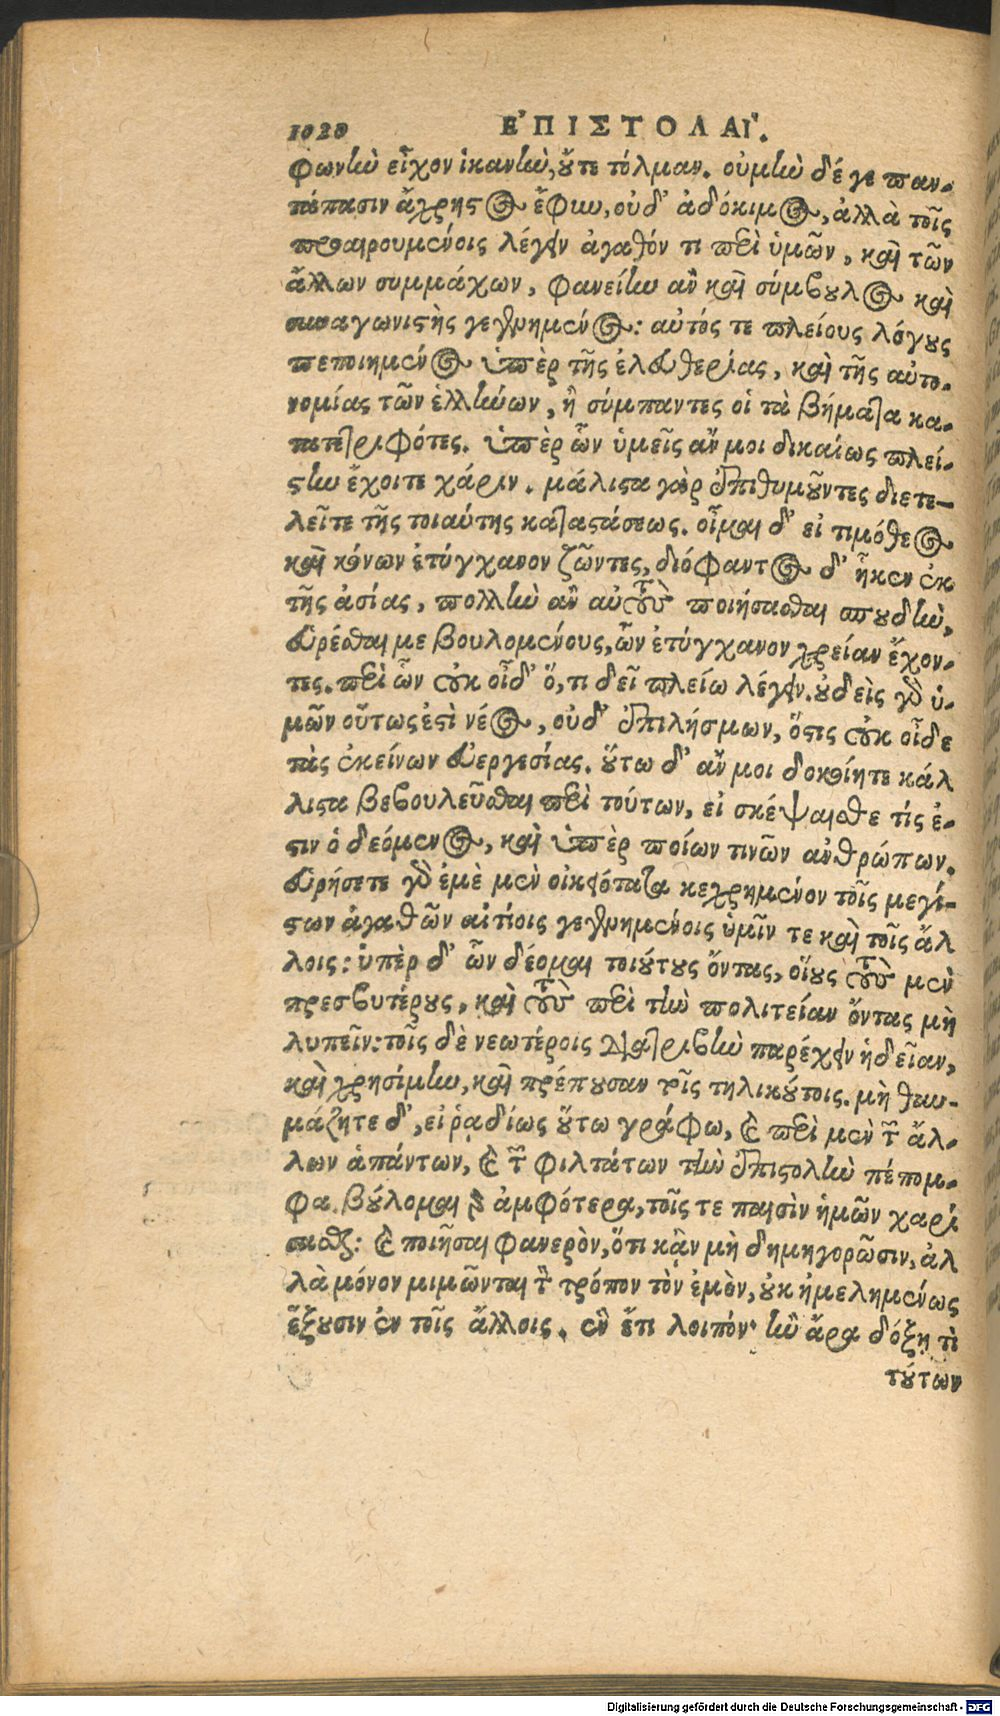 1020 ἘΠΙΣΤΟΛΑΙ.
φωνὴν εἶχον ἱκανὴν, οὔτε τόλμαν. οὐμὴν δέ γε παν-
τάπασιν ἄχρηστος ἔφυν, οὐδ' ἀδόκιμος, ἀλλὰ τοῖς
προαιρουμένοις λέγειν ἀγαθόν τι περὶ ὑμῶν, καὶ τῶν
ἄλλων συμμάχων, φανείην ἂν καὶ σύμβουλος καὶ
συναγωνιστὴς γεγενημένος: αὐτός τε πλείους λόγους
πεποιημένος ὑπὲρ τῆς ἐλευθερίας, καὶ τῆς αὐτο-
νομίας τῶν ἑλλήνων, ἢ σύμπαντες οἱ τὰ βήματα κα-
τατετριφότες. ὑπὲρ ὧν ὑμεῖς ἄν μοι δικαίως πλεί-
στην ἔχοιτε χάριν. μάλιστα γὰρ ἐπιθυμοῦντες διετε-
λεῖτε τῆς τοιαύτης καταστάσεως. οἶμαι δ' εἰ τιμόθεος
καὶ κόνων ἐτύγχανον ζῶντες, διόφαντος δ' ἧκεν ἐκ
τῆς ἀσίας, πολλὴν ἂν αὐτοὺς ποιήσασθαι σπουδὴν,
εὑρέσθαι με βουλομένους, ὧν ἐτύγχανον χρείαν ἔχον-
τες. περὶ ὧν οὐκ οἶδ' ὅ,τι δεῖ πλείω λέγειν. οὐδεὶς γὰρ ὑ-
μῶν οὕτως ἐστὶ νέος, οὐδ' ἐπιλήσμων, ὅστις οὐκ οἶδε
τὰς ἐκείνων εὐεργεσίας. οὕτω δ' ἄν μοι δοκοίητε κάλ
λιστα βεβουλεῦσθαι περὶ τούτων, εἰ σκέψαισθε τίς ἐ-
στιν ὁ δεόμενος, καὶ ὑπὲρ ποίων τινῶν ἀνθρώπων.
εὑρήσετε γὰρ ἐμὲ μὲν οἰκειότατα κεχρημένον τοῖς μεγί-
στων ἀγαθῶν αἰτίοις γεγενημένοις ὑμῖν τε καὶ τοῖς ἄλ
λοις: ὑπὲρ δ' ὧν δέομαι τοιούτους ὄντας, οἵους τοὺς μὲν
πρεσβυτέρους, καὶ τοὺς περὶ τὴν πολιτείαν ὄντας μὴ
λυπεῖν: τοῖς δὲ νεωτέροις διατριβὴν παρέχειν ἡδεῖαν,
καὶ χρησίμην, καὶ πρέπουσαν τοῖς τηλικούτοις. μὴ θαυ-
μάζητε δ', εἰ ῥᾳδίως οὕτω γράφω, καὶ περὶ μὲν τῶν ἄλ-
λων ἁπάντων, καὶ τῶν φιλτάτων τὴν ἐπιστολὴν πέπομ-
φα. βούλομαι γὰρ ἀμφότερα, τοῖς τε παισὶν ἡμῶν χαρί
σασθαι: καὶ ποιῆσαι φανερὸν, ὅτι κἂν μὴ δημηγορῶσιν, ἀλ
λὰ μόνον μιμῶνται τὸν τρόπον τὸν ἐμὸν, οὐκ ἠμελημένως
ἕξουσιν ἐν τοῖς ἄλλοις. ἓν ἔτι λοιπόν· ἢν ἄρα δόξῃ τὶ
τούτων
Digitalisierung gefördert durch die Deutsche Forschungsgemeinschaft - DFG